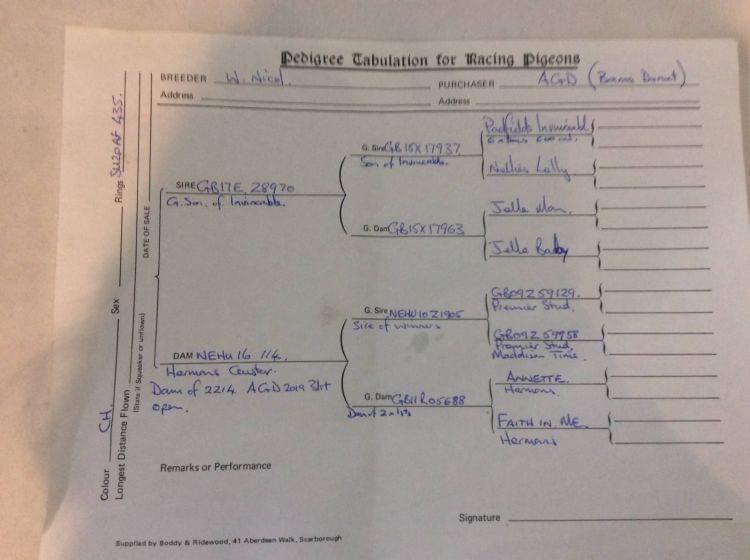 Pedigree Tabulation for Racing Pigeons
BREEDER W. Nicol.
Address
PURCHASER AGD
Address
Rings SU20AF 435.
Sex
Colour CH.
Longest Distance Flown
DATE OF SALE
(State if Squeaker or unflown)
SIRE GB17E 28970
G. Son. of Invincable.
G. Sire GB15X17937
Son of Invincable.
Padfields Invincable
600
Nellies Lolly
G. Dam GB15X17963
Jelle Man.
Jelle Baby
DAM NEHU 16 114.
Hermans
Dam of 2214 AGD 2019 31st
open.
G. Sire NEHU10Z1905
Sire of winners
GB09Z59129.
Premier Stud.
GB09Z59958
Premier Stud,
Maddison Time.
G. Dam GB11R05688
Dam of 2x1sts
ANNETTE.
Hermans.
FAITH IN ME.
Hermans
Remarks or Performance
Signature
Supplied by Boddy & Ridewood, 41 Aberdeen Walk, Scarborough